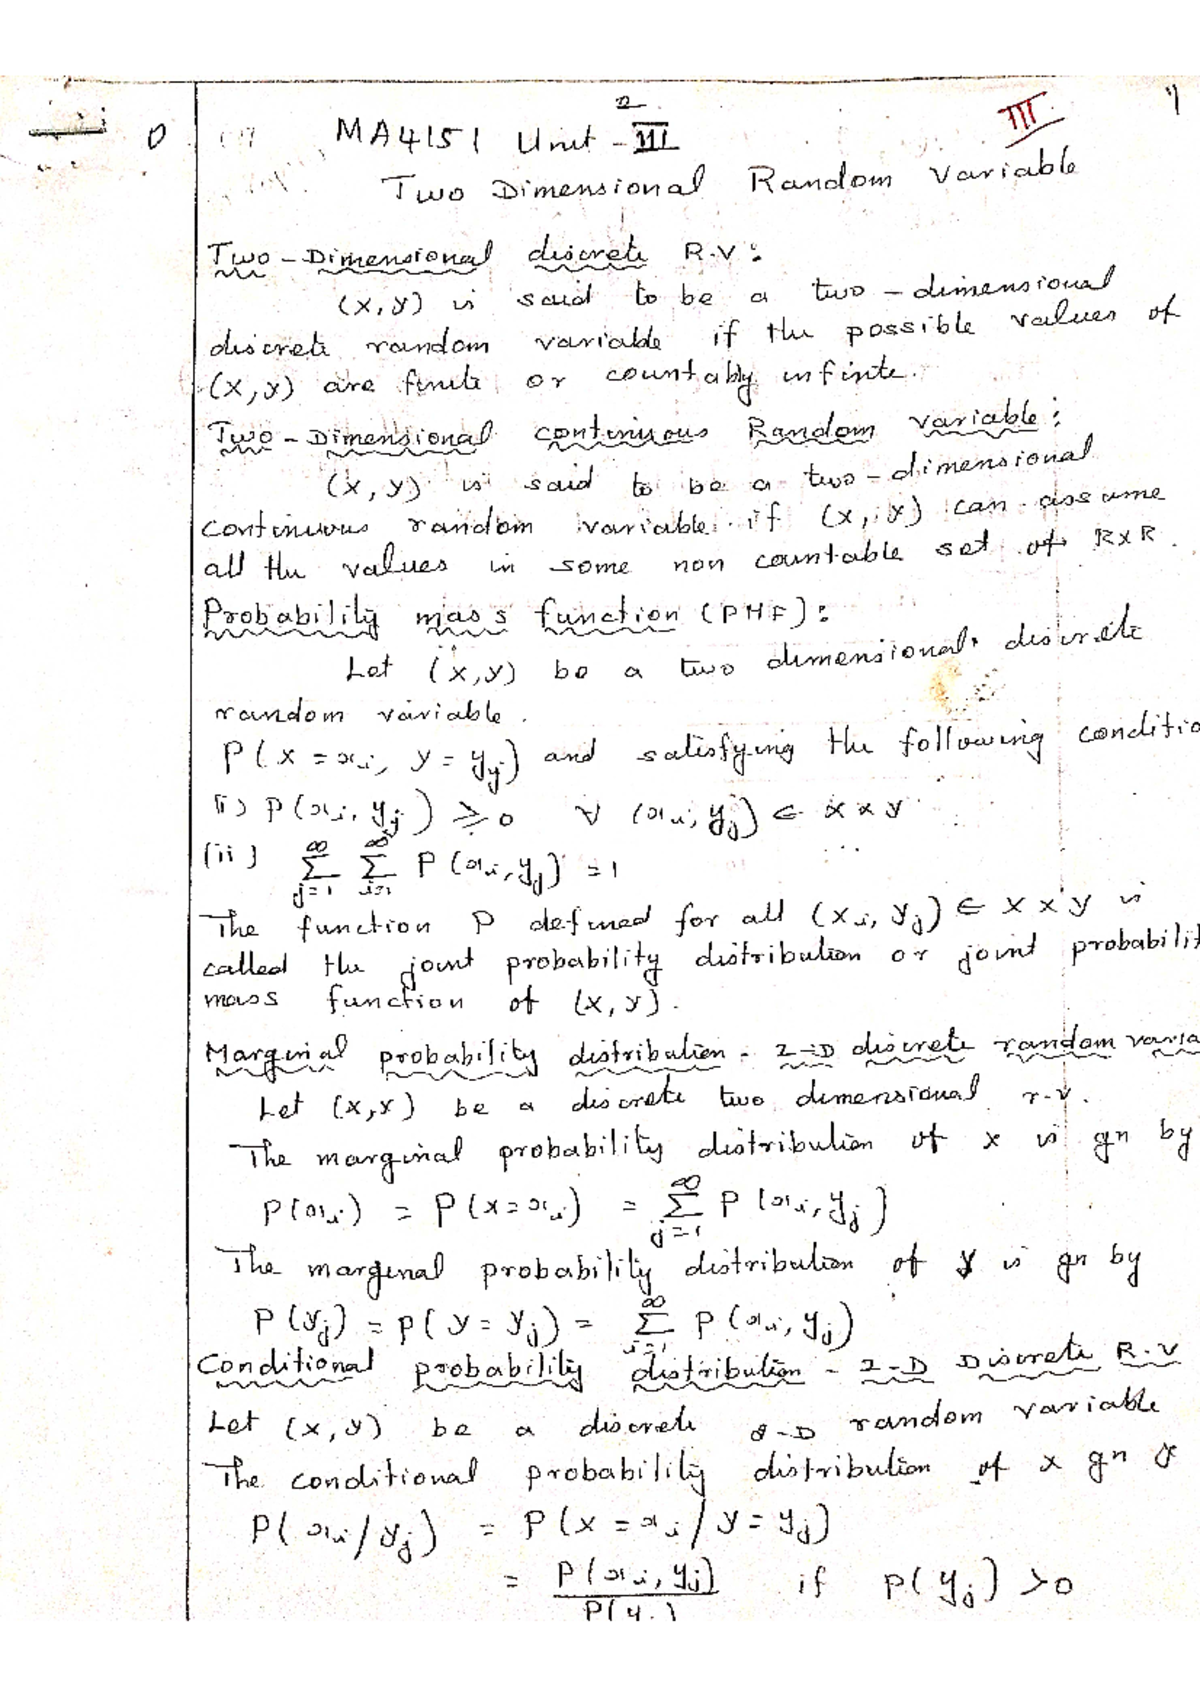 III
MA4151 Unit - III
Two Dimensional Random Variable
Two-Dimensional discrete R.V:
(X, Y) is said to be a two-dimensional
discrete random variable if the possible values of
(X, Y) are finite or countably infinite.
Two-Dimensional continuous Random Variable:
(X, Y) is said to be a two-dimensional
continuous random variable if (X, Y) can assume
all the values in some non countable set of R×R.
Probability mass function (PMF):
Let (X, Y) be a two dimensional discrete
random variable.
P(X = xi, Y = yj) and satisfying the following conditio
(i) P(xi, yj) ≥ 0 ∀ (xi, yj) ∈ X × Y
(ii) ∞ Σ j=1 ∞ Σ i=1 P(xi, yj) = 1
The function P defined for all (xi, yj) ∈ X × Y is
called the joint probability distribution or joint probabilit
mass function of (X, Y).
Marginal probability distribution - 2-D discrete random varia
Let (X, Y) be a discrete two dimensional r.v.
The marginal probability distribution of X is gn by
P(xi) = P(X = xi) = ∞ Σ j=1 P(xi, yj)
The marginal probability distribution of Y is gn by
P(yj) = P(Y = yj) = ∞ Σ i=1 P(xi, yj)
Conditional probability distribution - 2-D Discrete R.V
Let (X, Y) be a discrete 2-D random variable
The conditional probability distribution of X gn Y
P(xi/yj) = P(X = xi / Y = yj)
= P(xi, yj) if P(yj) > 0